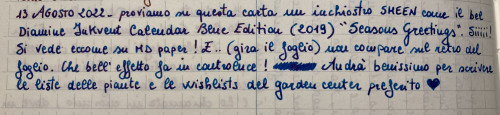 13 AGOSTO 2022 - proviamo su questa carta un inchiostro SHEEN come il bel
Diamine InkVent Calendar Blue Edition (2019) "Seasons Greetings". Siiii!
Si vede eccome su MD paper! E.. (gira il foglio) non compare sul retro del
foglio. Che bell'effetto fa in controluce! Andrà benissimo per scrivere
le liste delle piante e le wishlists del garden center preferito ♥